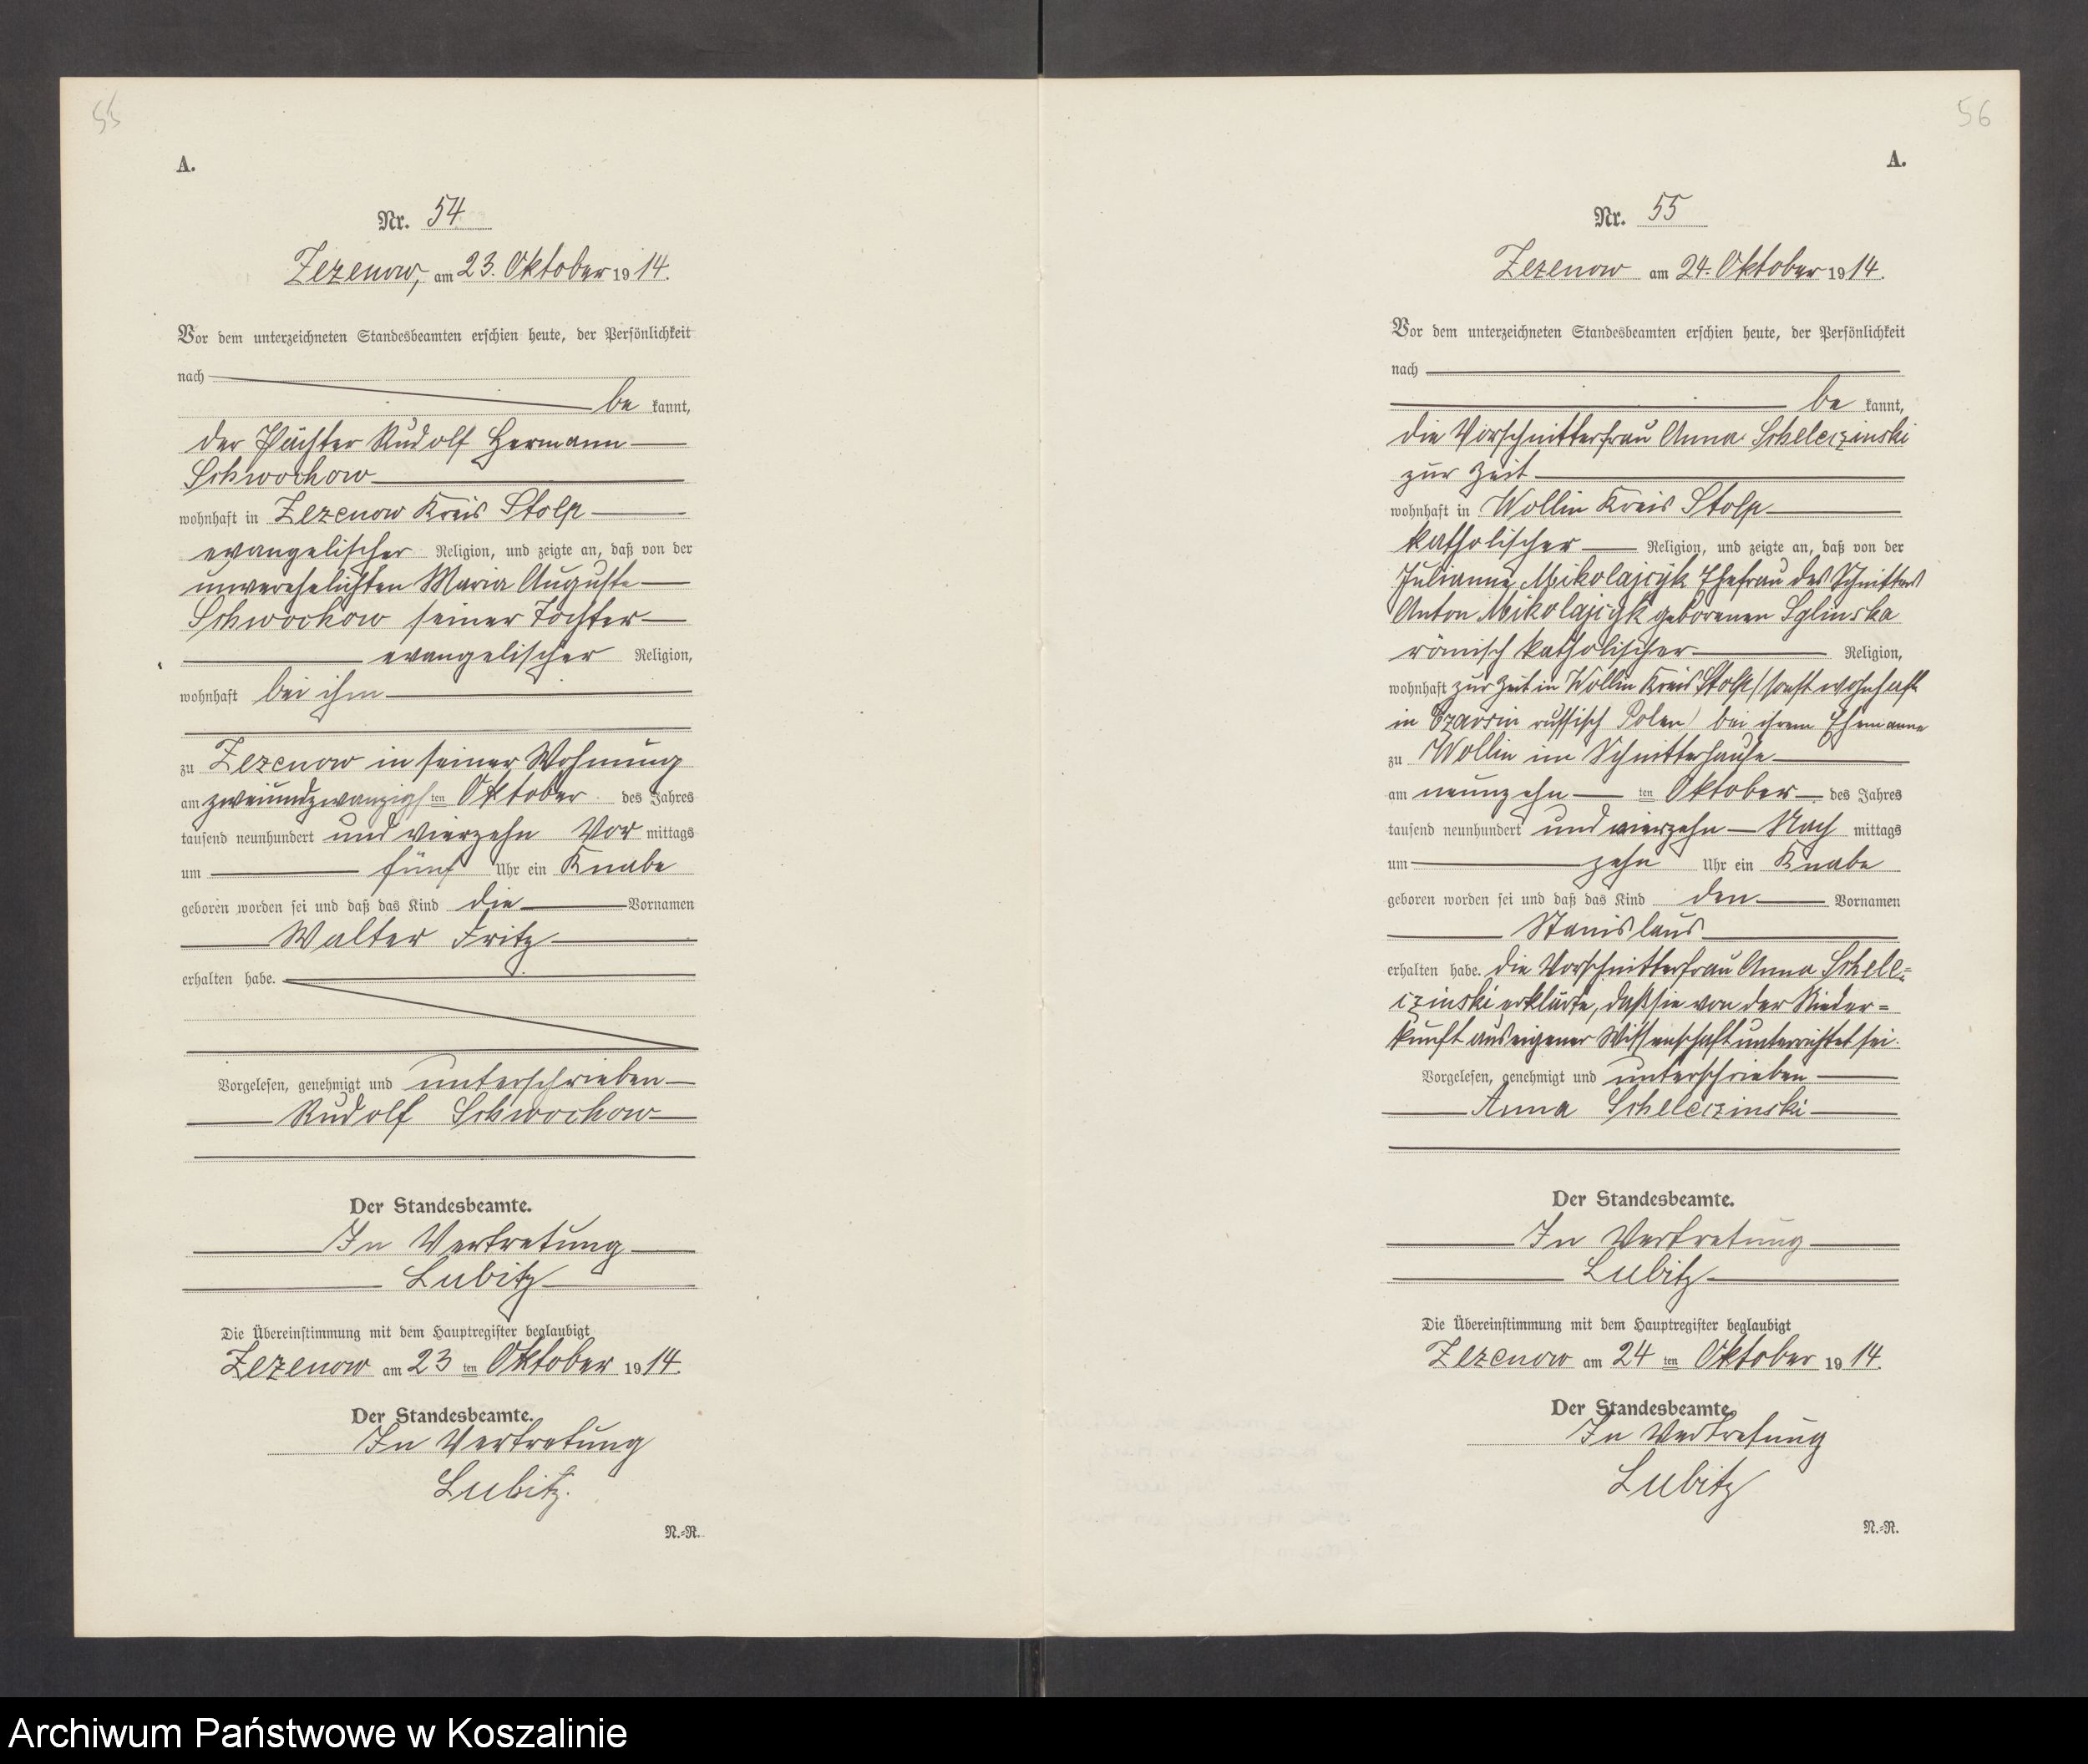 55
A.
Nr. 54
Zezenow, am 23. Oktober 1914.
Vor dem unterzeichneten Standesbeamten erschien heute, der Persönlichkeit
nach
be kannt,
der Pächter Rudolf Hermann
Schwochow
wohnhaft in Zezenow Kreis Stolp
evangelischer Religion, und zeigte an, daß von der
unverehelichten Maria Auguste
Schwochow seiner Tochter
evangelischer Religion,
wohnhaft bei ihm
zu Zezenow in seiner Wohnung
am zweiundzwanzigsten Oktober des Jahres
tausend neunhundert und vierzehn Vor mittags
um fünf Uhr ein Knabe
geboren worden sei und daß das Kind die Vornamen
Walter Fritz
erhalten habe.
Vorgelesen, genehmigt und unterschrieben
Rudolf Schwochow
Der Standesbeamte.
In Vertretung
Lubitz
Die Übereinstimmung mit dem Hauptregister beglaubigt
Zezenow am 23 ten Oktober 1914.
Der Standesbeamte.
In Vertretung
Lubitz.
N.-R.
56
A.
Nr. 55
Zezenow am 24. Oktober 1914.
Vor dem unterzeichneten Standesbeamten erschien heute, der Persönlichkeit
nach
be kannt,
die Vorschnitterfrau Anna Scheleczinski
zur Zeit
wohnhaft in Wollin Kreis Stolp
katholischer Religion, und zeigte an, daß von der
Julianne Mikolajcyk Ehefrau des Schnitters
Anton Mikolajcyk geborenen Sglinska
römisch katholischer Religion,
wohnhaft zur Zeit in Wollin Kreis Stolp (sonst wohnhaft
in russisch Polen) bei ihrem Ehemanne
zu Wollin im Schnitterhause
am neunzehn ten Oktober des Jahres
tausend neunhundert und vierzehn Nach mittags
um zehn Uhr ein Knabe
geboren worden sei und daß das Kind den Vornamen
Stanislaus
erhalten habe. Die Vorschnitterfrau Anna Schele=
czinski erklärte, daß sie von der Nieder=
kunft aus eigener Wissenschaft unterrichtet sei.
Vorgelesen, genehmigt und unterschrieben
Anna Scheleczinski
Der Standesbeamte.
In Vertretung
Lubitz
Die Übereinstimmung mit dem Hauptregister beglaubigt
Zezenow am 24 ten Oktober 1914.
Der Standesbeamte.
In Vertretung
Lubitz
N.-R.
Archiwum Państwowe w Koszalinie